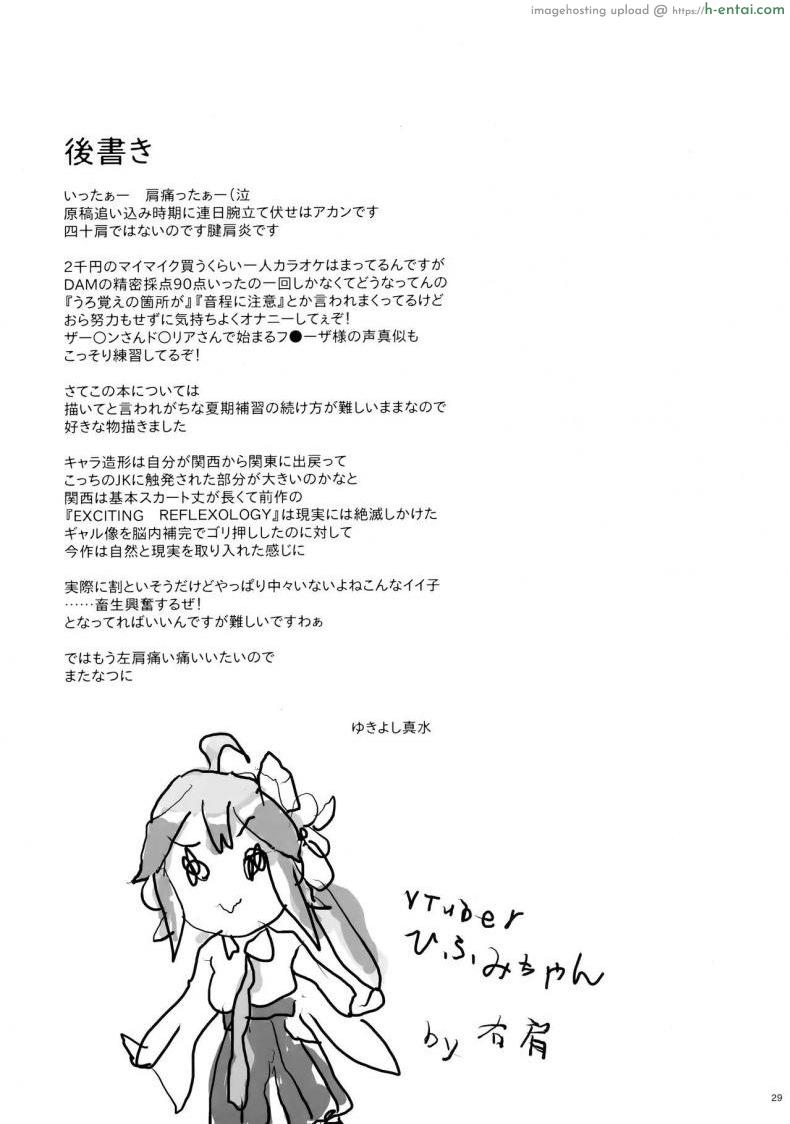 imagehosting upload @ https://h-entai.com
後書き
いったぁー　肩痛ったぁー(泣
原稿追い込み時期に連日腕立て伏せはアカンです
四十肩ではないのです腱肩炎です
2千円のマイマイク買うくらい一人カラオケはまってるんですが
DAMの精密採点90点いったの一回しかなくてどうなってんの
『うろ覚えの箇所が』『音程に注意』とか言われまくってるけど
おら努力もせずに気持ちよくオナニーしてぇぞ!
ザー〇ンさんド〇リアさんで始まるフ●ーザ様の声真似も
こっそり練習してるぞ!
さてこの本については
描いてと言われがちな夏期補習の続け方が難しいままなので
好きな物描きました
キャラ造形は自分が関西から関東に出戻って
こっちのJKに触発された部分が大きいのかなと
関西は基本スカート丈が長くて前作の
『EXCITING　REFLEXOLOGY』は現実には絶滅しかけた
ギャル像を脳内補完でゴリ押ししたのに対して
今作は自然と現実を取り入れた感じに
実際に割といそうだけどやっぱり中々いないよねこんなイイ子
……畜生興奮するぜ!
となってればいいんですが難しいですわぁ
ではもう左肩痛い痛いいたいので
またなつに
ゆきよし真水
VTuber
ひふみちゃん
by 右肩
29